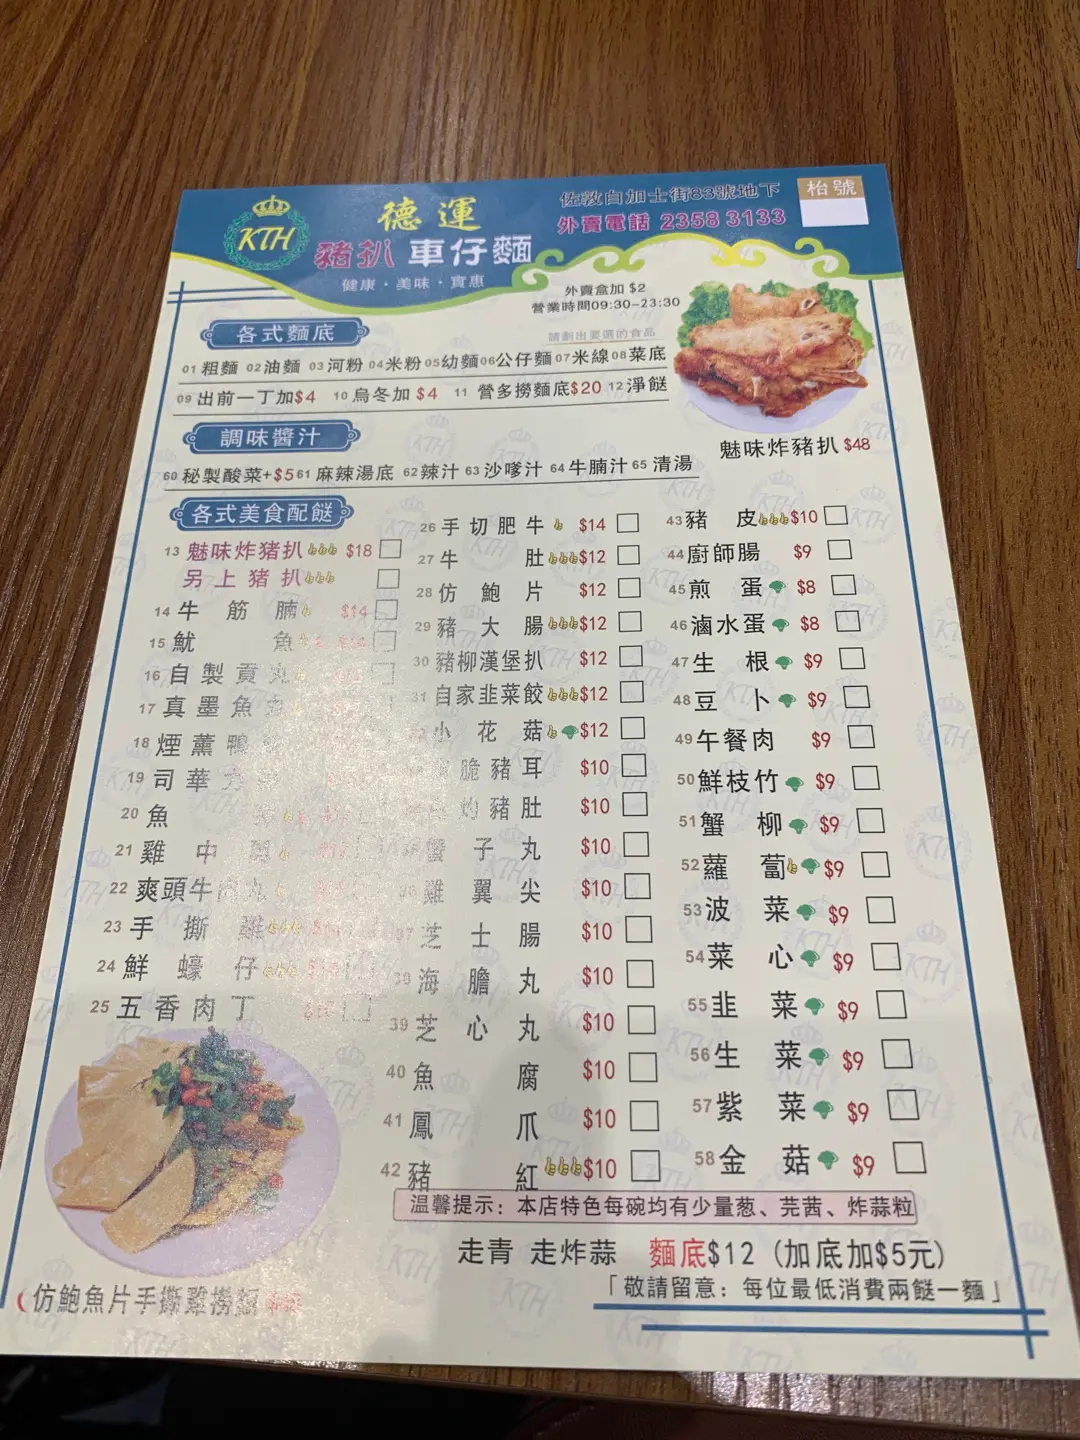 KTH
德運
豬扒 車仔麵
健康·美味·實惠
佐敦白加士街83號地下
外賣電話 2358 3133
枱號
外賣盒加 $2
營業時間09:30-23:30
請劃出要選的食品
各式麵底
01 粗麵 02 油麵 03 河粉 04 米粉 05 幼麵 06 公仔麵 07 米線 08 菜底
09 出前一丁加$4 10 烏冬加 $4 11 營多撈麵底$20 12 淨餸
調味醬汁
60 秘製酸菜+$5 61 麻辣湯底 62 辣汁 63 沙嗲汁 64 牛腩汁 65 清湯
魅味炸豬扒 $48
各式美食配餸
13 魅味炸猪扒 $18
另上猪扒
14 牛筋腩 $14
15 魷魚
16 自製貢丸
17 真墨魚
18 煙薰鴨
19 司華力
20 魚
21 雞中
22 爽頭牛肉丸
23 手撕雞
24 鮮蠔仔
25 五香肉丁
26 手切肥牛 $14
27 牛肚 $12
28 仿鮑片 $12
29 豬大腸 $12
30 豬柳漢堡扒 $12
31 自家韭菜餃 $12
小花菇 $12
脆豬耳 $10
灼豬肚 $10
子丸 $10
雞翼尖 $10
37 芝士腸 $10
38 海膽丸 $10
39 芝心丸 $10
40 魚腐 $10
41 鳳爪 $10
42 豬紅 $10
43 豬皮 $10
44 廚師腸 $9
45 煎蛋 $8
46 滷水蛋 $8
47 生根 $9
48 豆卜 $9
49 午餐肉 $9
50 鮮枝竹 $9
51 蟹柳 $9
52 蘿蔔 $9
53 波菜 $9
54 菜心 $9
55 韭菜 $9
56 生菜 $9
57 紫菜 $9
58 金菇 $9
溫馨提示：本店特色每碗均有少量葱、芫茜、炸蒜粒
走青 走炸蒜 麵底$12（加底加$5元）
「敬請留意：每位最低消費兩餸一麵」
仿鮑魚片手撕雞撈麵